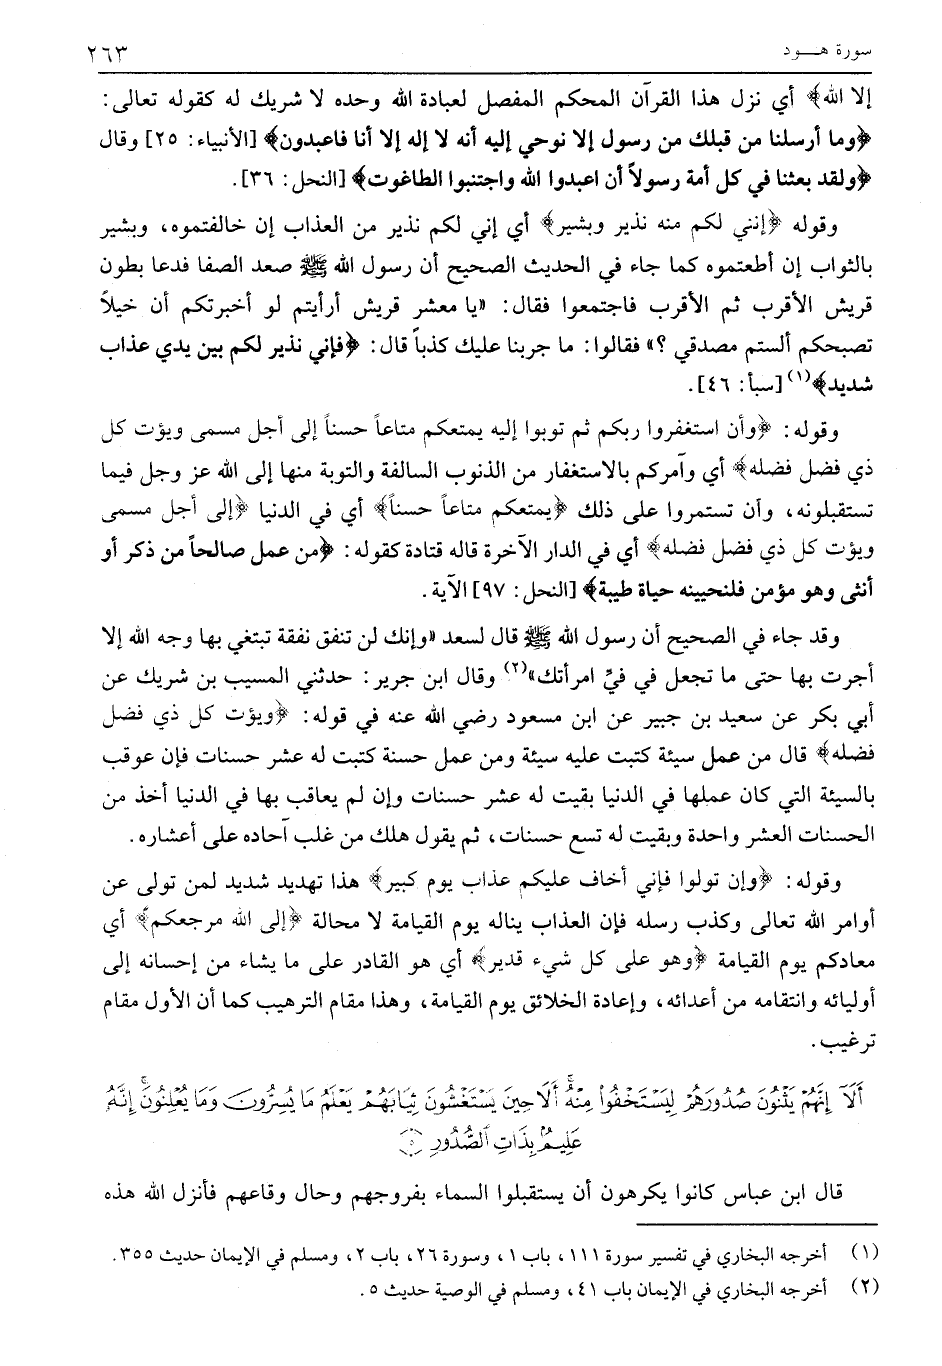 سورة هـــود
٢٦٣
إلا الله﴾ أي نزل هذا القرآن المحكم المفصل لعبادة الله وحده لا شريك له كقوله تعالى:
﴿وما أرسلنا من قبلك من رسول إلا نوحي إليه أنه لا إله إلا أنا فاعبدون﴾ [الأنبياء: ٢٥] وقال
﴿ولقد بعثنا في كل أمة رسولاً أن اعبدوا الله واجتنبوا الطاغوت﴾ [النحل: ٣٦].
وقوله ﴿إنني لكم منه نذير وبشير﴾ أي إني لكم نذير من العذاب إن خالفتموه، وبشير
بالثواب إن أطعتموه كما جاء في الحديث الصحيح أن رسول الله ﷺ صعد الصفا فدعا بطون
قريش الأقرب ثم الأقرب فاجتمعوا فقال: «يا معشر قريش أرأيتم لو أخبرتكم أن خيلاً
تصبحكم ألستم مصدقي ؟» فقالوا: ما جربنا عليك كذباً قال: ﴿فإني نذير لكم بين يدي عذاب
شديد﴾(١) [سبأ: ٤٦].
وقوله: ﴿وأن استغفروا ربكم ثم توبوا إليه يمتعكم متاعاً حسناً إلى أجل مسمى ويؤت كل
ذي فضل فضله﴾ أي وآمركم بالاستغفار من الذنوب السالفة والتوبة منها إلى الله عز وجل فيما
تستقبلونه، وأن تستمروا على ذلك ﴿يمتعكم متاعاً حسناً﴾ أي في الدنيا ﴿إلى أجل مسمى
ويؤت كل ذي فضل فضله﴾ أي في الدار الآخرة قاله قتادة كقوله: ﴿من عمل صالحاً من ذكر أو
أنثى وهو مؤمن فلنحيينه حياة طيبة﴾ [النحل: ٩٧] الآية.
وقد جاء في الصحيح أن رسول الله ﷺ قال لسعد «وإنك لن تنفق نفقة تبتغي بها وجه الله إلا
أجرت بها حتى ما تجعل في فيِّ امرأتك»(٢) وقال ابن جرير: حدثني المسيب بن شريك عن
أبي بكر عن سعيد بن جبير عن ابن مسعود رضي الله عنه في قوله: ﴿ويؤت كل ذي فضل
فضله﴾ قال من عمل سيئة كتبت عليه سيئة ومن عمل حسنة كتبت له عشر حسنات فإن عوقب
بالسيئة التي كان عملها في الدنيا بقيت له عشر حسنات وإن لم يعاقب بها في الدنيا أخذ من
الحسنات العشر واحدة وبقيت له تسع حسنات، ثم يقول هلك من غلب آحاده على أعشاره.
وقوله: ﴿وإن تولوا فإني أخاف عليكم عذاب يوم كبير﴾ هذا تهديد شديد لمن تولى عن
أوامر الله تعالى وكذب رسله فإن العذاب يناله يوم القيامة لا محالة ﴿إلى الله مرجعكم﴾ أي
معادكم يوم القيامة ﴿وهو على كل شيء قدير﴾ أي هو القادر على ما يشاء من إحسانه إلى
أوليائه وانتقامه من أعدائه، وإعادة الخلائق يوم القيامة، وهذا مقام الترهيب كما أن الأول مقام
ترغيب.
أَلَآ إِنَّهُمْ يَثْنُونَ صُدُورَهُمْ لِيَسْتَخْفُوا۟ مِنْهُ ۚ أَلَا حِينَ يَسْتَغْشُونَ ثِيَابَهُمْ يَعْلَمُ مَا يُسِرُّونَ وَمَا يُعْلِنُونَ ۚ إِنَّهُۥ
عَلِيمٌۢ بِذَاتِ ٱلصُّدُورِ ۝٥
قال ابن عباس كانوا يكرهون أن يستقبلوا السماء بفروجهم وحال وقاعهم فأنزل الله هذه
(١) أخرجه البخاري في تفسير سورة ١١١، باب ١، وسورة ٢٦، باب ٢، ومسلم في الإيمان حديث ٣٥٥.
(٢) أخرجه البخاري في الإيمان باب ٤١، ومسلم في الوصية حديث ٥.